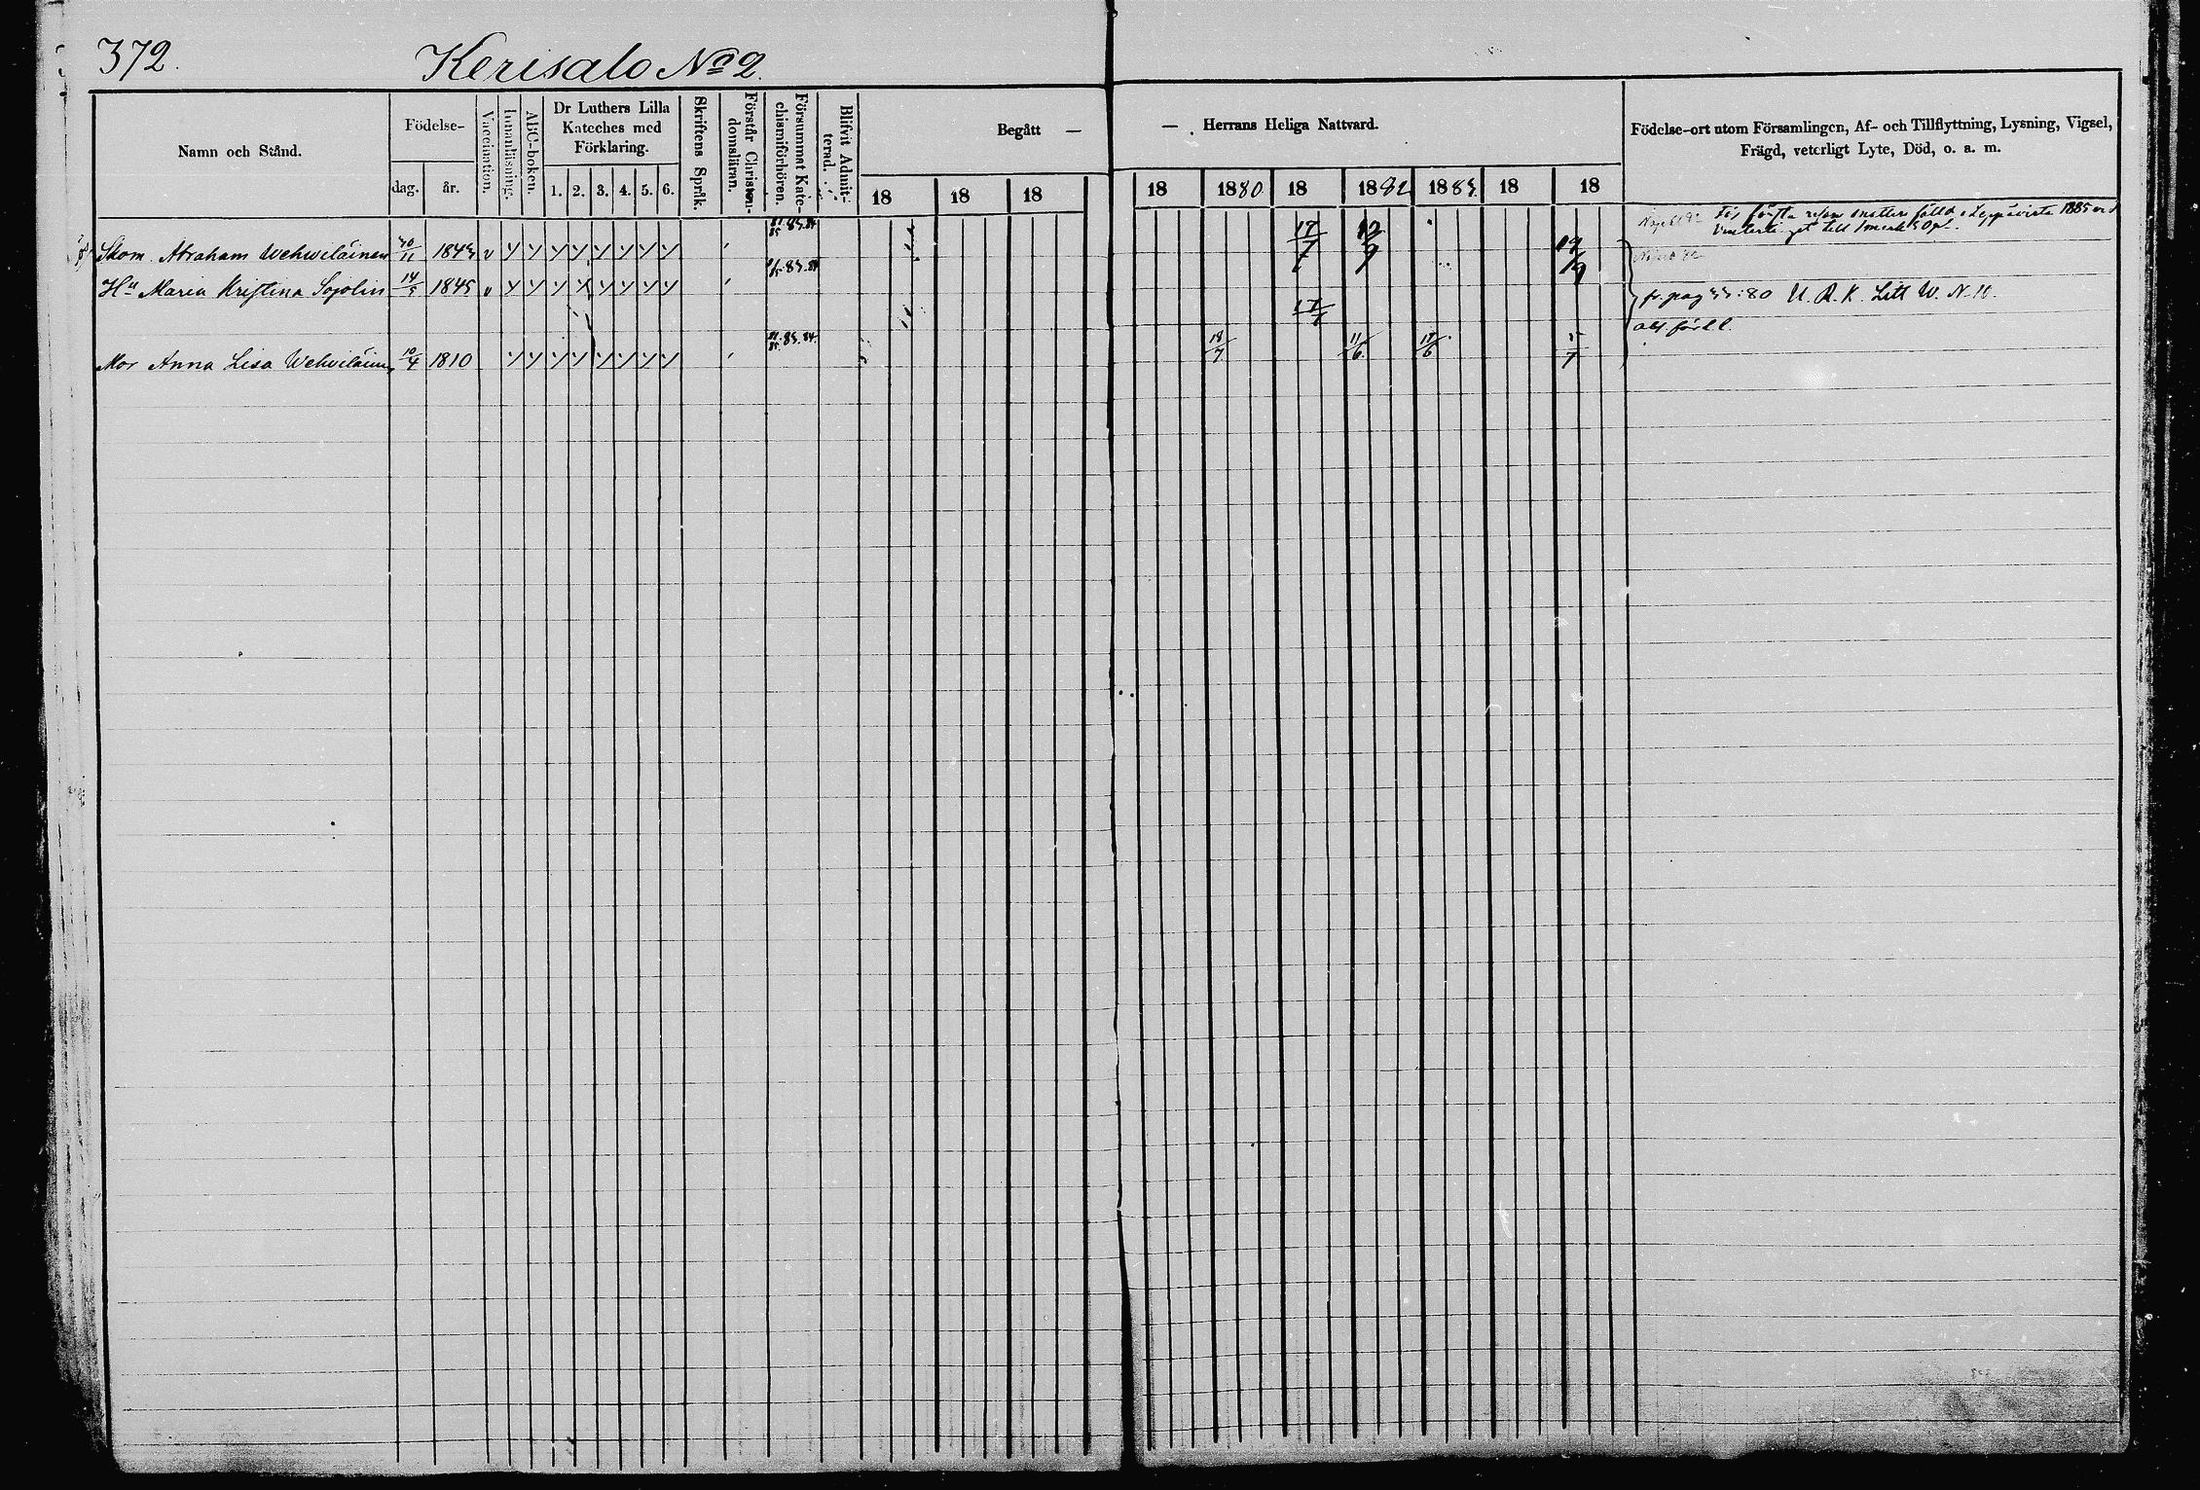 372.
Kerisalo No 2.
Namn och Stånd.
Födelse-
dag.
år.
Vaccination.
Innanläsning.
ABC-boken.
Dr Luthers Lilla
Kateches med
Förklaring.
1. 2. 3. 4. 5. 6.
Skriftens Språk.
Förstår Christen-
domsläran.
Försummat Kate-
chismiförhören.
Blifvit Admit-
terad.
Begått —
18 18 18
— Herrans Heliga Nattvard.
18 1880 18 1882 1883 18 18
Födelse-ort utom Församlingen, Af- och Tillflyttning, Lysning, Vigsel,
Frägd, veterligt Lyte, Död, o. a. m.
Skom. Abraham Wehwiläinen 30/11 1843 v 83.84 17/7 12/9 19/9
Hu Maria Kristina Sojolin 14/5 1845 v 83.84 fr. pag 33:80 U. R. K. Litt W. N.
17/7
Mor Anna Lisa Wehviläinen 10/4 1810 83.84 18/7 11/6 17/6 5/7